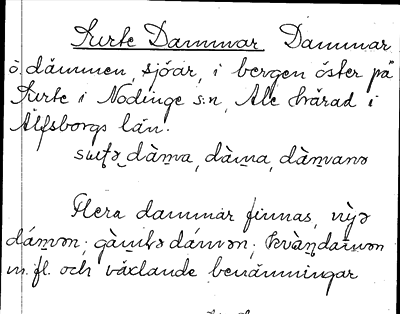 Surte Dammar Dammar
o. dämmen, sjöar, i bergen öster på
Surte i Nödinge s:n, Ale härad i
Älfsborgs län.
dàm̲va, dàm̲a, dàm̲vanə
Flera dammar finnas, nỳə
dám̲ən; gàm̲bə dám̲ən; kvàn̲dam̲ən
m. fl. och växlande benämningar